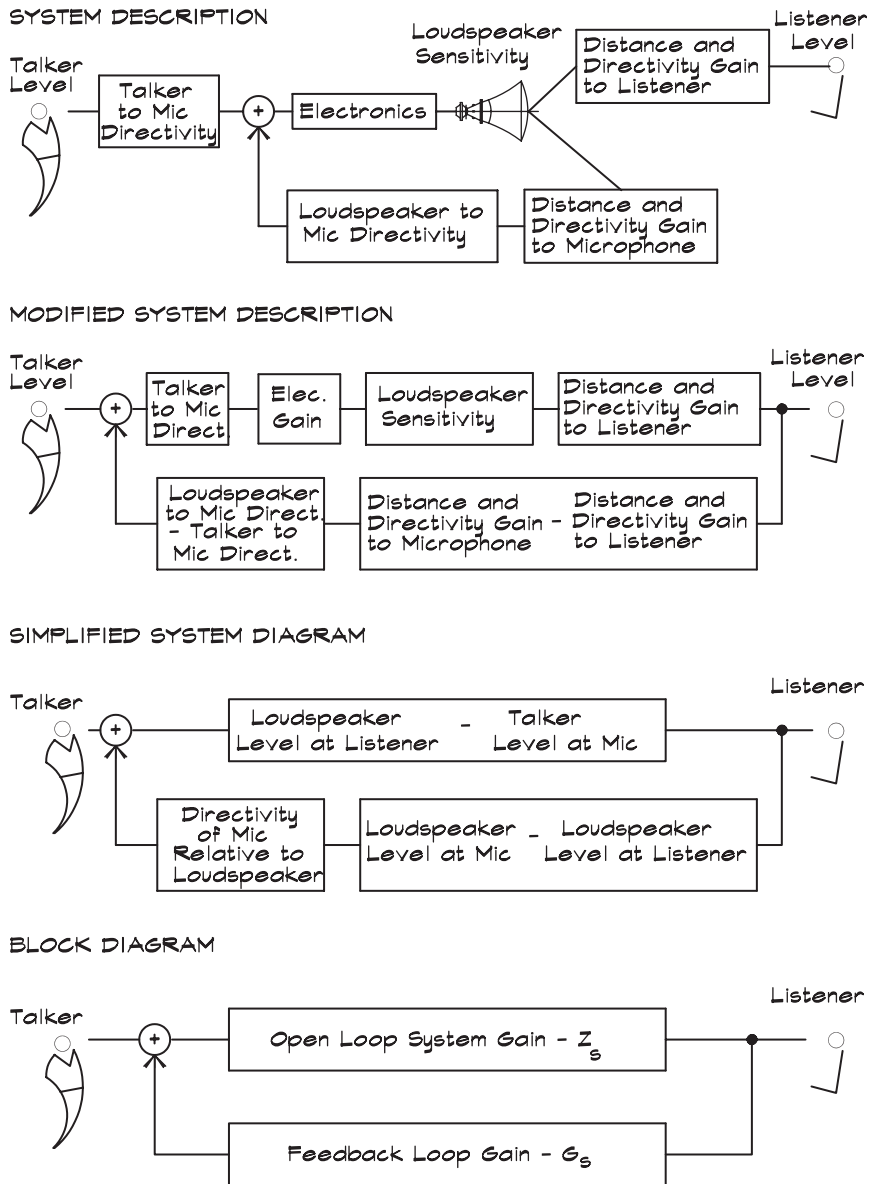 SYSTEM DESCRIPTION
Talker
Level
Talker
to Mic
Directivity
+
Electronics
Loudspeaker
Sensitivity
Distance and
Directivity Gain
to Listener
Listener
Level
Loudspeaker to
Mic Directivity
Distance and
Directivity Gain
to Microphone
MODIFIED SYSTEM DESCRIPTION
Talker
Level
+
Talker
to Mic
Direct.
Elec.
Gain
Loudspeaker
Sensitivity
Distance and
Directivity Gain
to Listener
Listener
Level
Loudspeaker
to Mic Direct.
- Talker to
Mic Direct.
Distance and
Directivity Gain
to Microphone
-
Distance and
Directivity Gain
to Listener
SIMPLIFIED SYSTEM DIAGRAM
Talker
+
Loudspeaker
Level at Listener
-
Talker
Level at Mic
Listener
Directivity
of Mic
Relative to
Loudspeaker
Loudspeaker
Level at Mic
-
Loudspeaker
Level at Listener
BLOCK DIAGRAM
Talker
+
Open Loop System Gain - Zs
Listener
Feedback Loop Gain - Gs